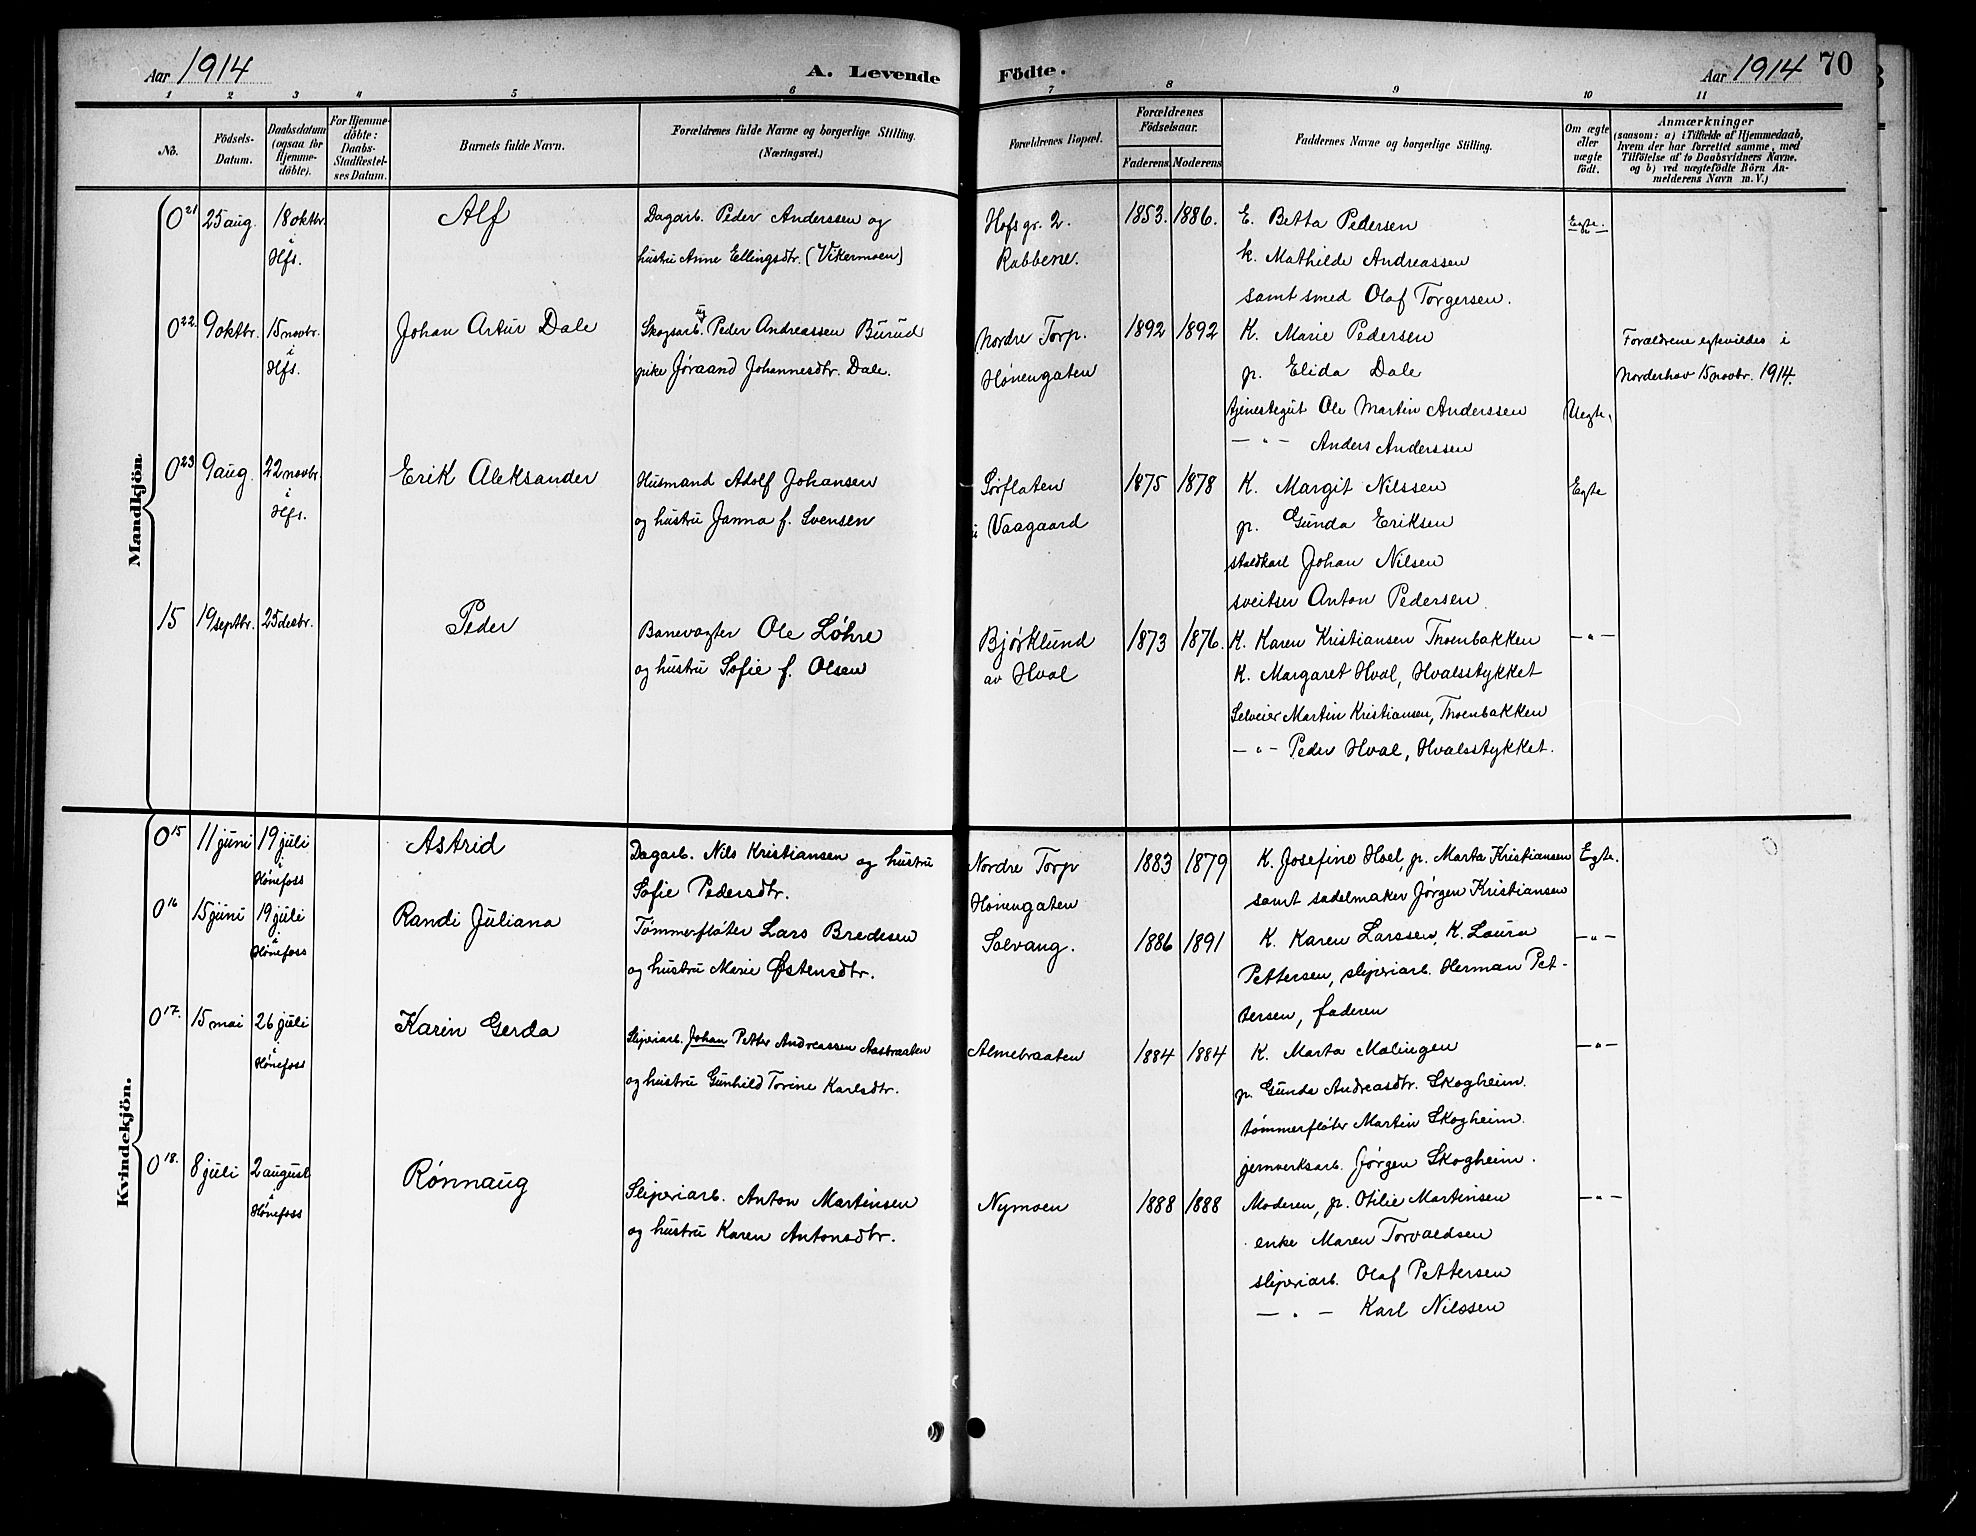 Aar 1914
A. Levende
1 2 3 4 5 6
No.
Födsels-Datum.
Daabsdatum (ogsaa for Hjemme-döbte).
For Hjemme-döbte: Daabs-Stadfæstel-ses Datum.
Barnets fulde Navn.
Forældrenes fulde Navne og borgerlige Stilling.
(Næringsvei.)
Mandkjön.
0 21 25 aug. 18 oktbr. i Hfs. Alf
Dagarb. Peder Anderssen og
hustru Anne Ellingsdtr. (Vikermoen)
0 22. 9 oktbr. 15 novbr. i Hfs. Johan Artur Dale
Skogsarb. ug. Peder Andreassen Burud
pike Jøraand Johannesdtr. Dale.
0 23 9 aug. 22 novbr. i Hfs. Erik Aleksander
Husmand Adolf Johansen
og hustru Janna f. Svensen
15 19 septbr. 25 decbr. Peder
Banevogter Ole Løhre
og hustru Sofie f. Olsen
Kvindekjön.
0 15 11 juni 19 juli i Hönefoss Astrid
Dagarb. Nils Kristiansen og hustru
Sofie Pedersdtr.
0 16 15 juni 19 juli i Hönefoss Randi Juliana
Tømmerfløter Lars Bredesen
og hustru Marie Østensdtr.
0 17. 15 mai 26 juli i Hönefoss Karin Gerda
Sliperiarb. Johan Petter Andreassen Aasbraaten
og hustru Gunhild Torine Karlsdtr.
0 18. 8 juli 2 august i Hönefoss Rønnaug
Sliperiarb. Anton Martinsen
og hustru Karen Antonsdtr.
Födte.
Aar 1914 70
7 8 9 10 11
Forældrenes Bopæl.
Forældrenes Födselsaar.
Faderens. Moderens
Faddernes Navne og borgerlige Stilling.
Om ægte eller uægte födt.
Anmærkninger
(saasom: a) i Tilfælde af Hjemmedaab,
hvem der har forrettet samme, med
Tilföielse af to Daabsvidners Navne.
og b) ved uægtefödte Börn An-
melderens Navn m. V.)
Hofs gr. 2. 1853. 1886. E. Betta Pedersen Egte.
Rabbene. k. Mathilde Andreassen
samt smed Olaf Torgersen.
Nordre Torp. 1892 1892 K. Marie Pedersen
Forældrene egtevildes i
Hønengaten p. Elida Dale
Norderhov 15 novbr. 1914.
tjenestegut Ole Martin Anderssen Uegte.
— " — Anders Anderssen
Sørflaten 1875 1878 K. Margit Nilssen Egte
i Vaagaard p. Gunda Eriksen
staldkarl Johan Nilsen
sveitser Anton Pedersen
Bjørklund 1873 1876. K. Karen Kristiansen Thoenbakken — " —
av Hval K. Margaret Hval, Hvalsstykket
Selveier Martin Kristiansen, Thoenbakken
— " — Peder Hval, Hvalsstykket.
Nordre Torp 1883 1879 K. Josefine Hoel, p. Marta Kristiansen Egte.
Hønengaten samt sadelmaker Jørgen Kristiansen
Solvang. 1886 1891 K. Karen Larssen, K. Laura — " —
Pettersen, sliperiarb. Herman Pet-
tersen, faderen
Almebraaten 1884 1884 K. Marta Malingen — " —
p. Gunda Andreasdtr. Skogheim.
tømmerfløter Martin Skogheim.
jernverksarb. Jørgen Skogheim.
Nymoen 1888 1888 Moderen, p. Otilie Martinsen — " —
enke Maren Torvaldsen
sliperiarb. Olaf Pettersen
— " — Karl Nilssen